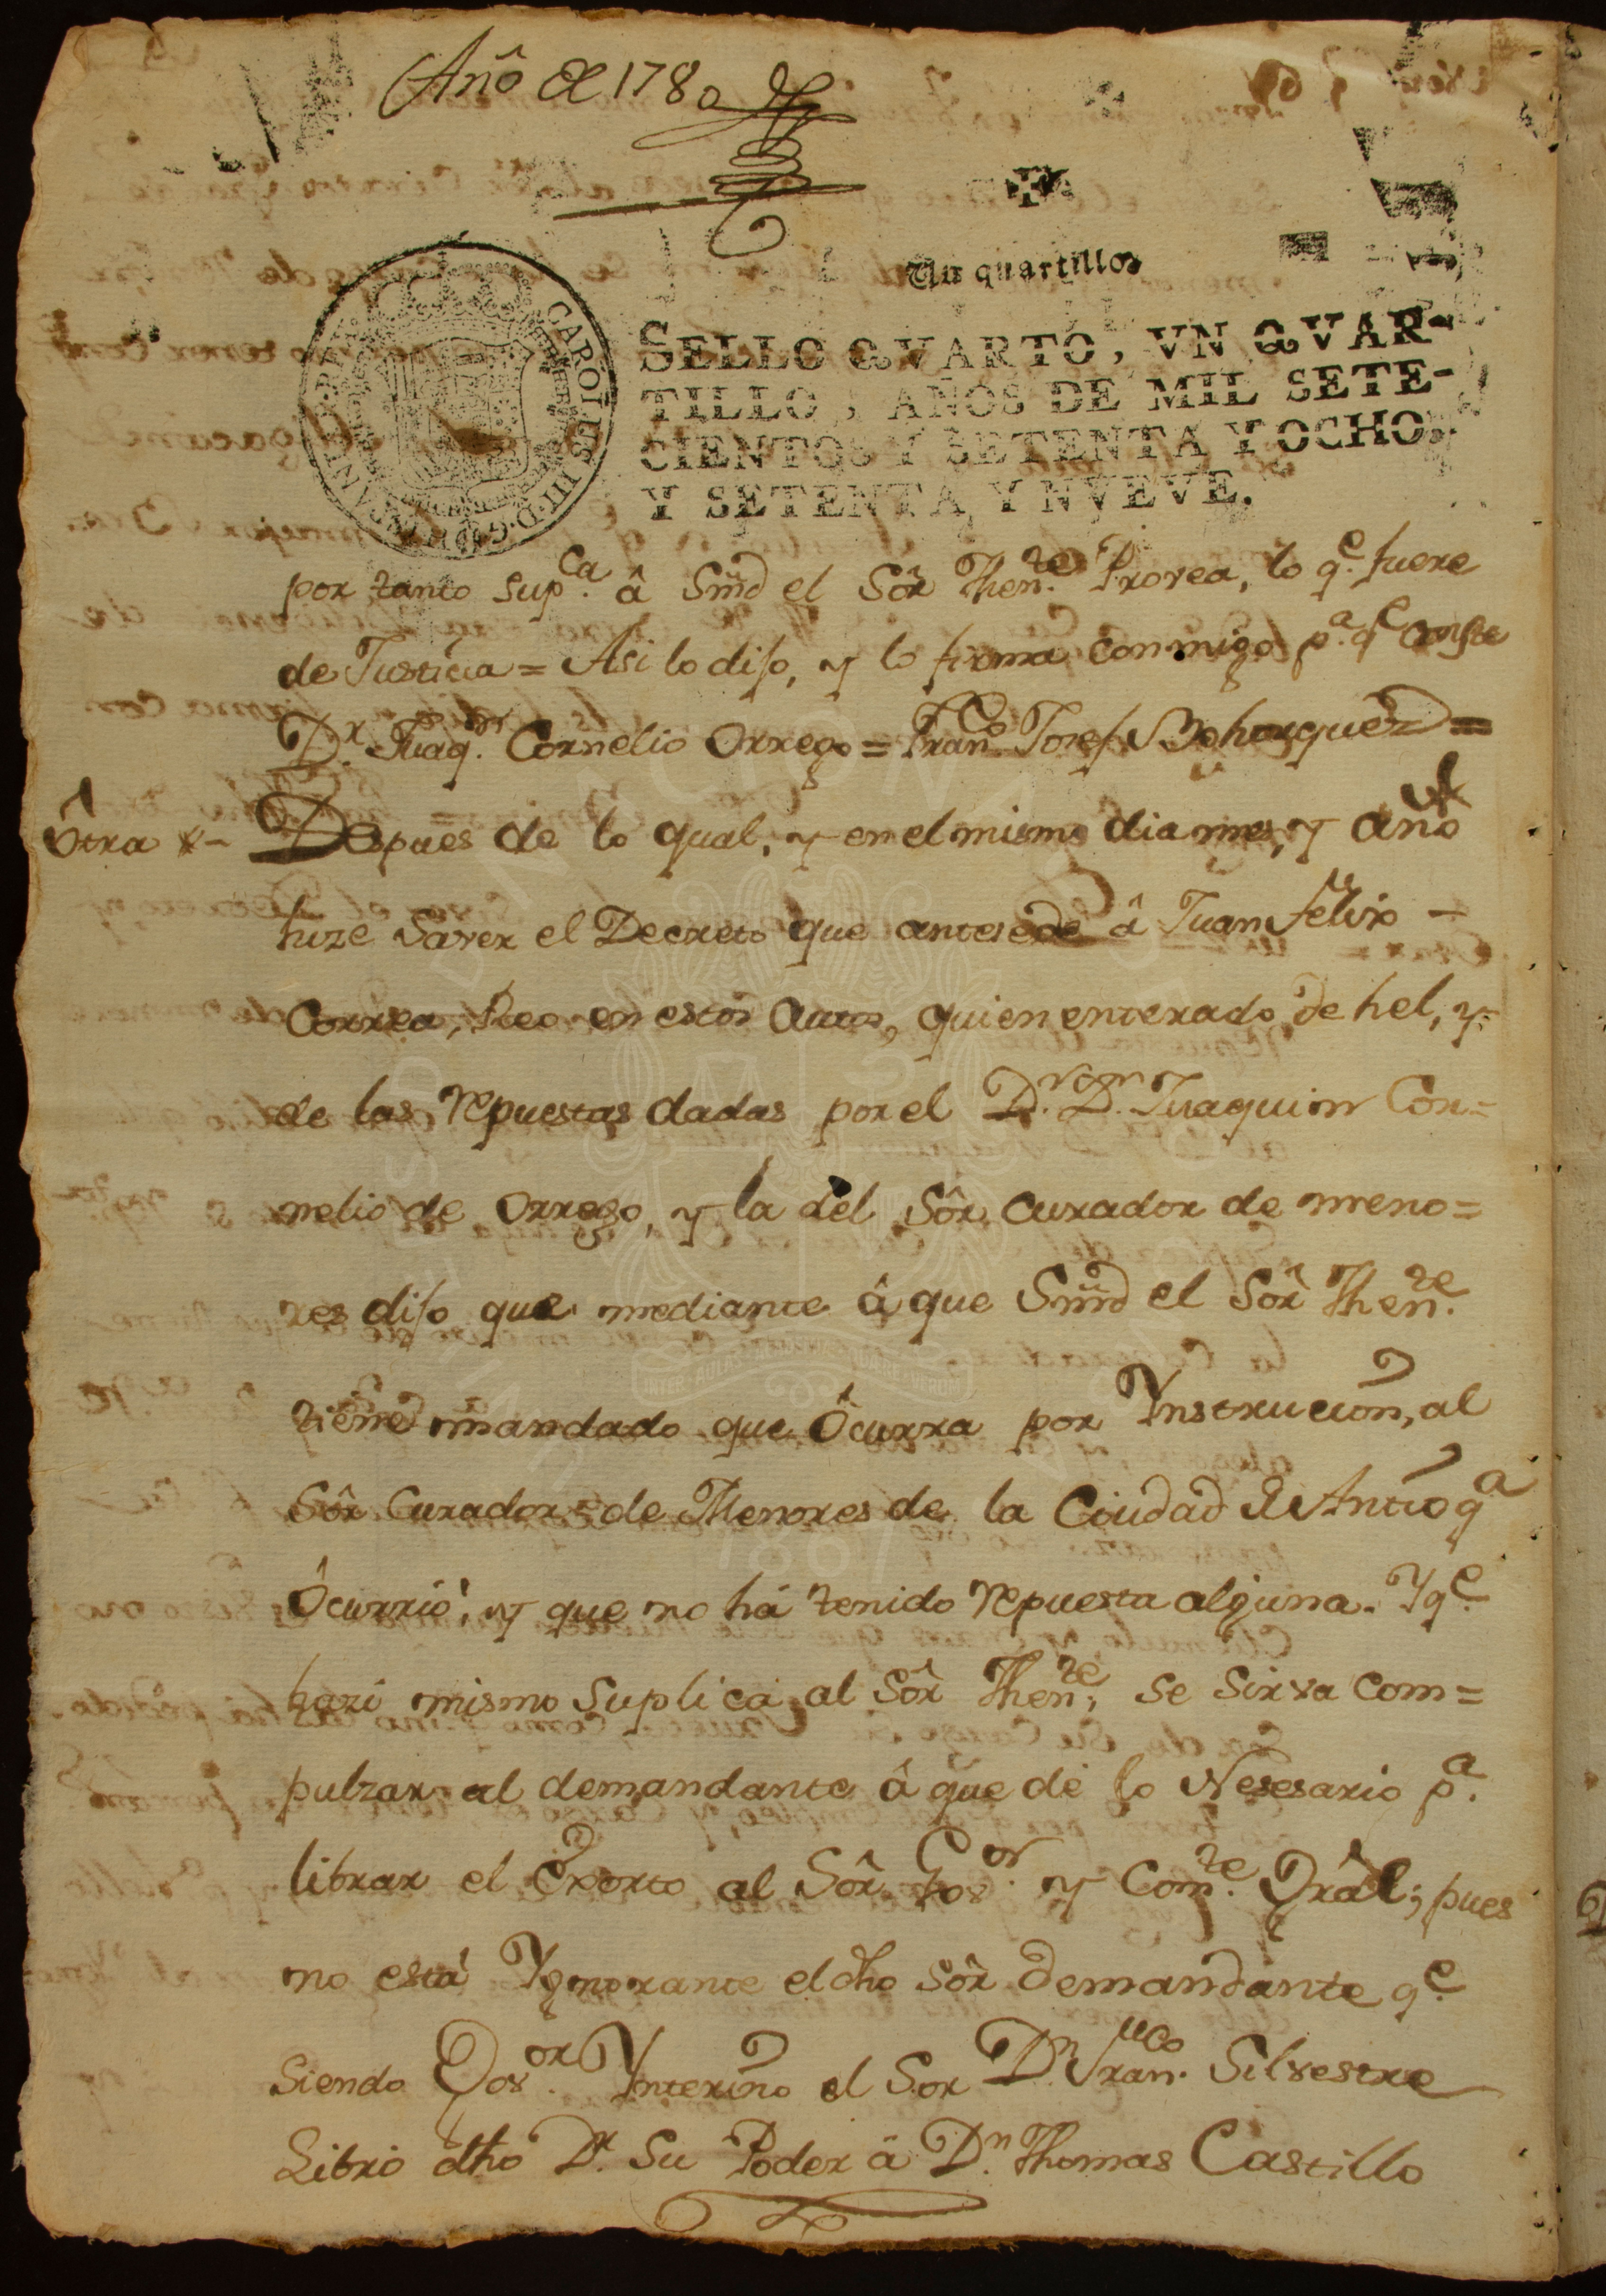 Año de 1780
Un quartillo
SELLO QVARTO, VN QVAR-
TILLO, AÑOS DE MIL SETE-
CIENTOS Y SETENTA Y OCHO,
Y SETENTA Y NVEVE.
CAROLUS III D G
por tanto sup.ca â Smd el Sôr Then.te Provea, lo q.e fuere
de Justicia = Asi lo dijo, y lo firma conmigo p.a q.e conste
D.r Juaq.n Cornelio Orrego = Fran.co Josef Bohorquez =
Ôtra Despues de lo qual, y en el mismo dia mes, y año
hize Saver el Decreto que antesede â Juan Felix
Correa, Reo en estos Autos, quien enterado de hel, y
de las repuestas dadas por el D.r D.n Juaquin Cor=
nelio de Orrego, y la del Sôr Curador de meno=
res dijo que mediante â que Smrd el Sôr Then.te
tiene mandado que Ôcurra por Ynstrucion, al
Sôr Curador de Menores de la Ciudad de Antioq.a
Ôcurrió, y que no há tenido repuesta alguna. Y q.e
hazi mismo Suplica al Sôr Then.te, se sirva com=
pulzar al demandante â que dé lo Nesesario p.a
librar el Exorto al Sôr Gov.or y Com.te Grâl; pues
no está Ygnorante el dho sôr demandante q.e
siendo Gov.or Ynterino el Sor D.n Fran.co Silvestre
Libró dho D.r Su Poder â D.n Thomas Castillo